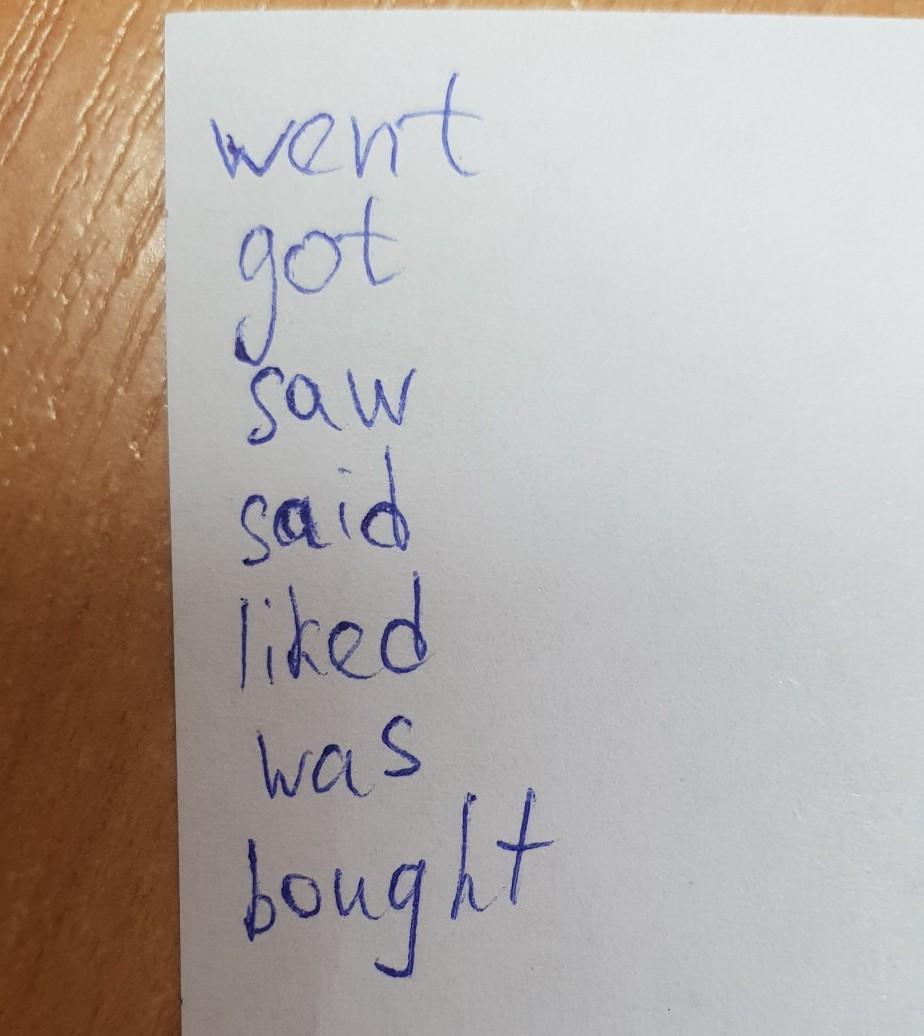 went
got
saw
said
liked
was
bought